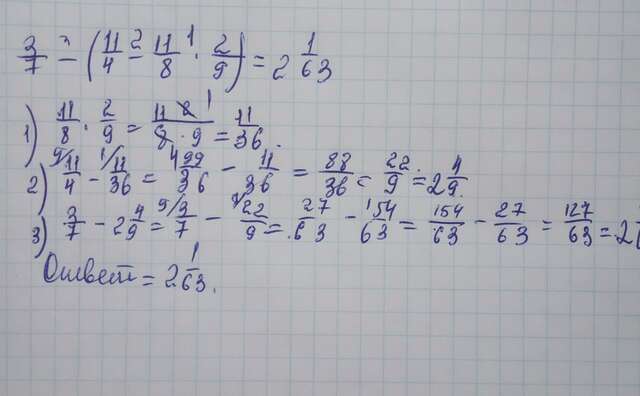 3/7 - (11/4 - 11/8 · 2/9) = 2 1/63
1) 11/8 · 2/9 = 11 2/8 · 9 = 11/36.
2) 11/4 - 11/36 = 99/36 - 11/36 = 88/36 = 22/9 = 2 4/9.
3) 3/7 - 2 4/9 = 3/7 - 22/9 = 27/63 - 154/63 = 154/63 - 27/63 = 127/63 = 2
Ответ = 2 1/63.